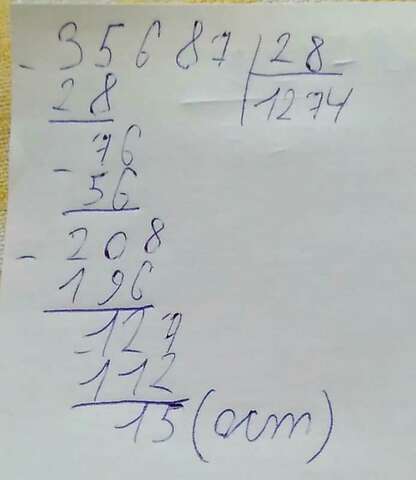 - 35687 | 28
28 | 1274
- 76
56
- 208
196
- 127
112
15 (ост)